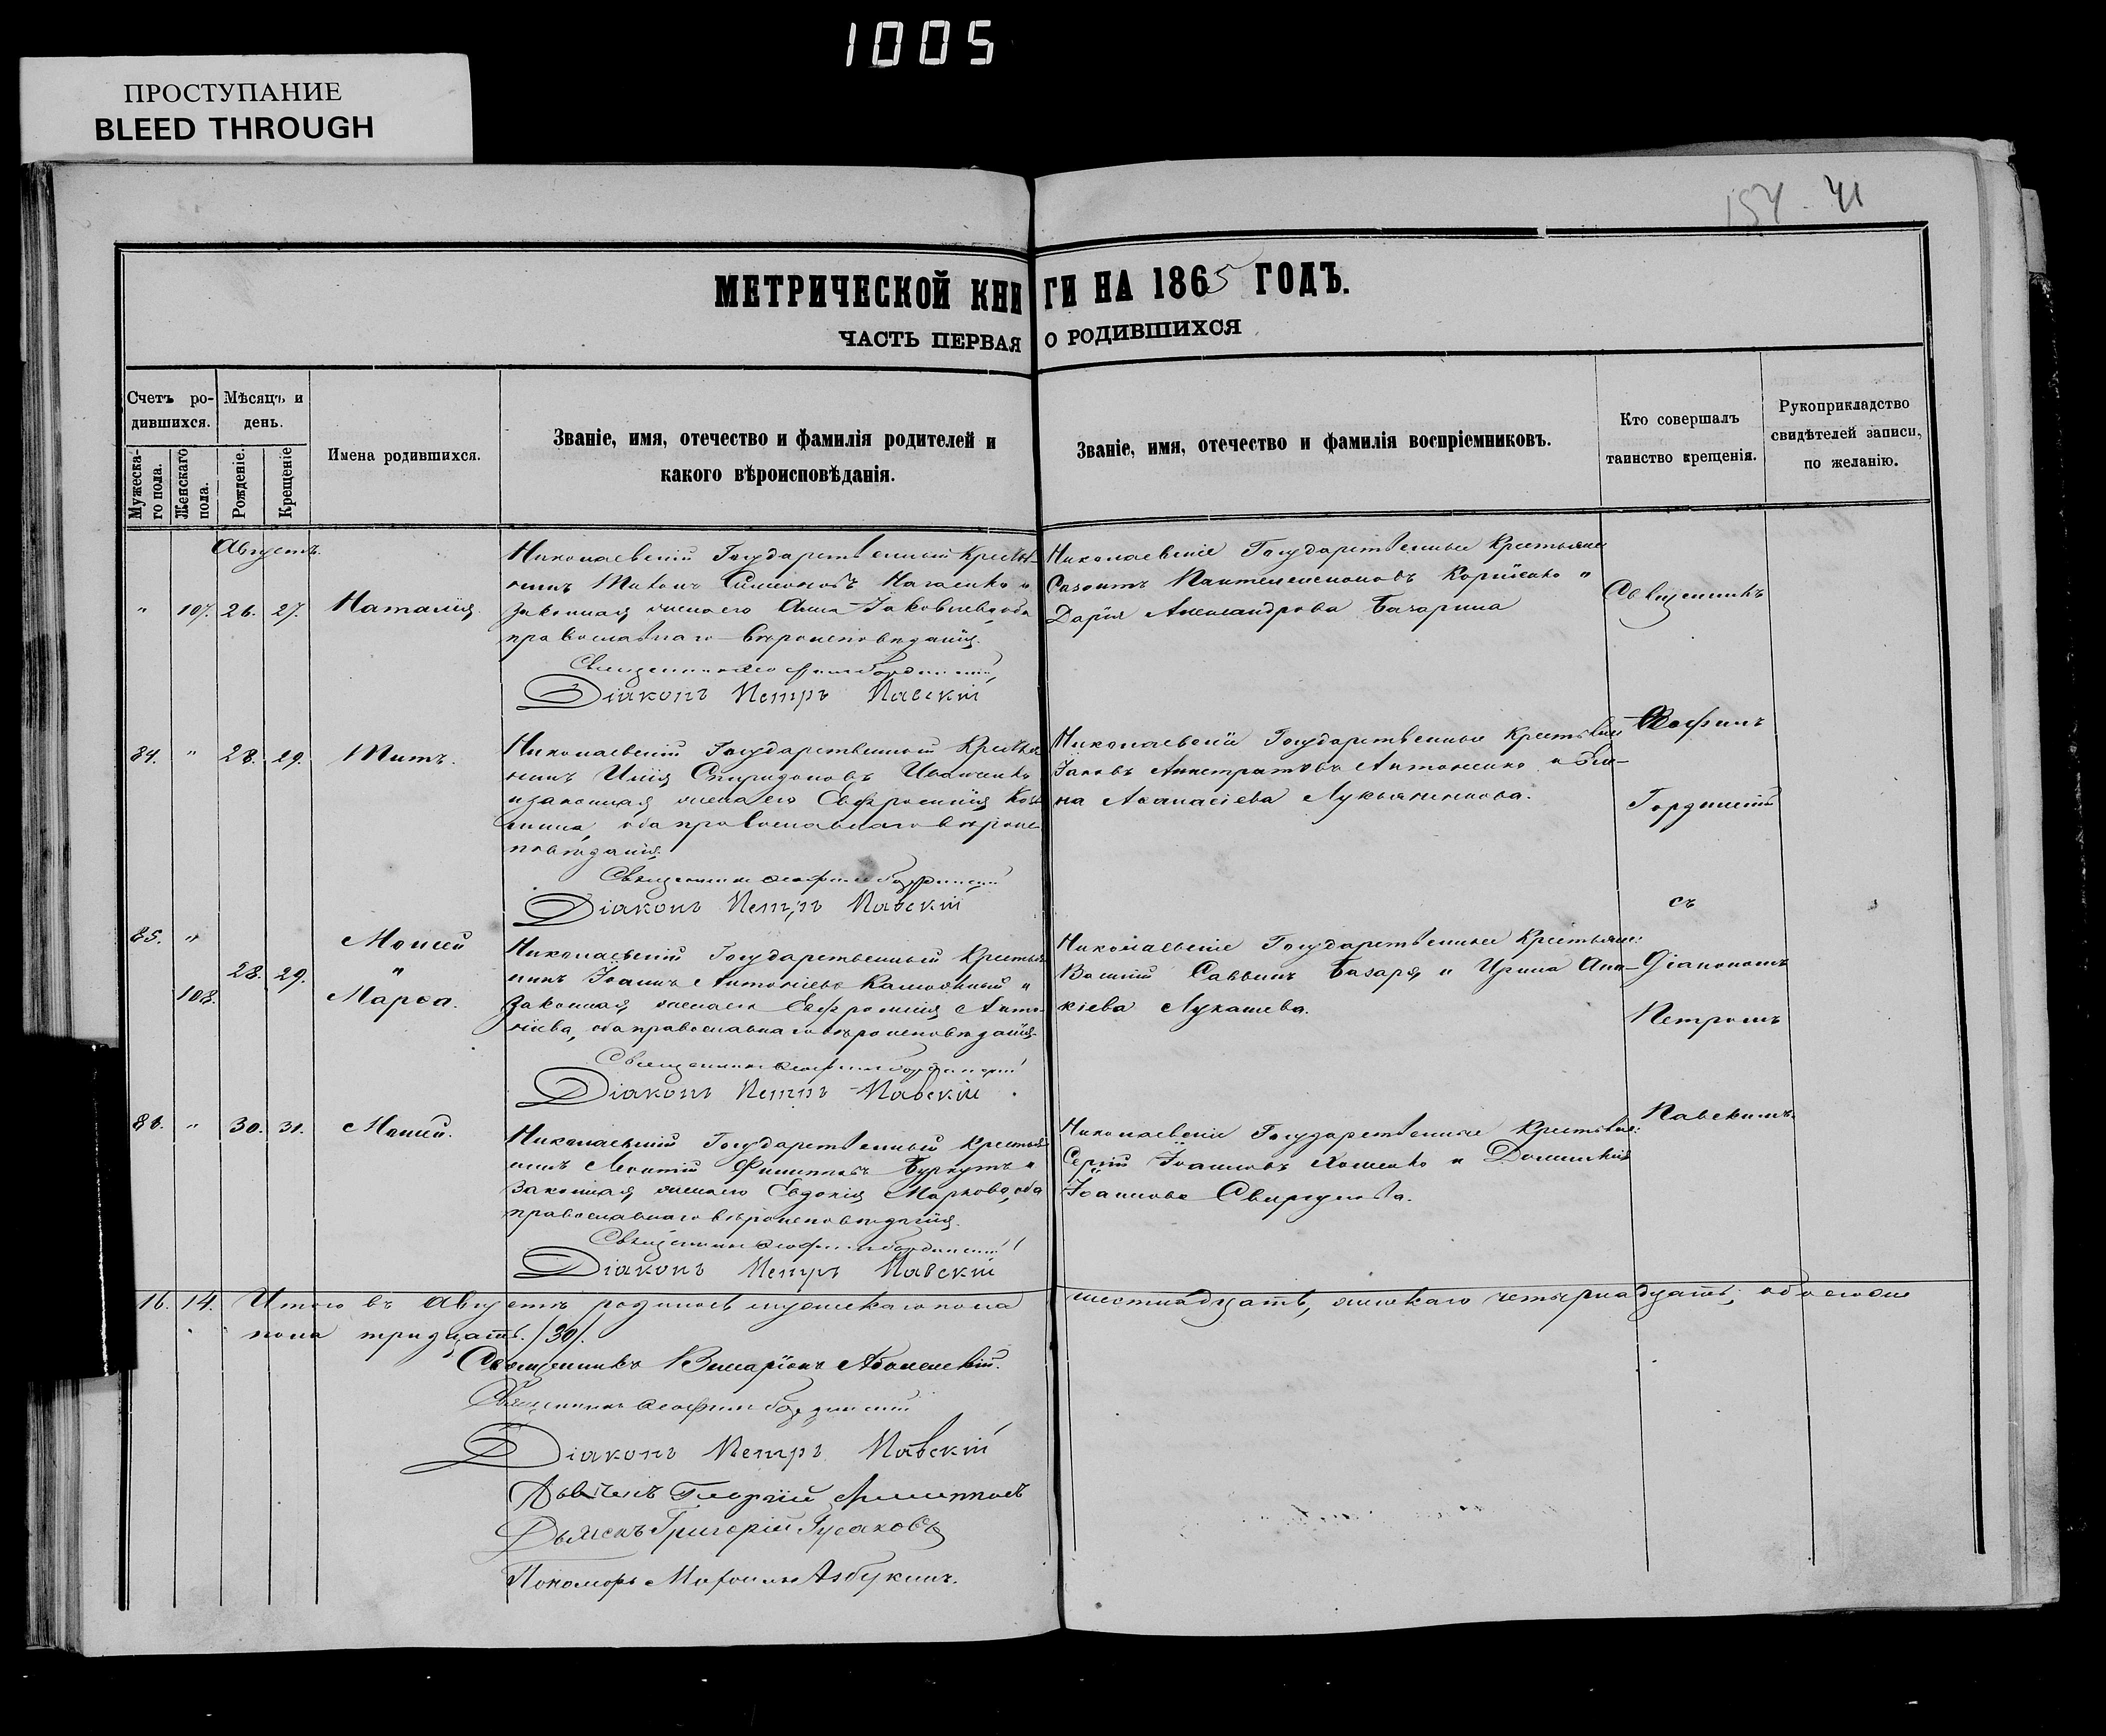 1005
ПРОСТУПАНИЕ
BLEED THROUGH
154. 41
МЕТРИЧЕСКОЙ КНИГИ НА 1865 ГОДЪ.
ЧАСТЬ ПЕРВАЯ О РОДИВШИХСЯ
Счетъ родившихся.
Мужескаго пола.
Женскаго пола.
Мѣсяцъ и день.
Рожденіе.
Крещеніе
Имена родившихся.
Званіе, имя, отечество и фамилія родителей и
какого вѣроисповѣданія.
Званіе, имя, отечество и фамилія воспріемниковъ.
Кто совершалъ
таинство крещенія.
Рукоприкладство
свидѣтелей записи,
по желанію.
Августъ.
" 107. 26. 27. Наталія.
Николаевскій Государственный Крестья-
нинъ Тихонъ Симоновъ и
законная жена его Анна Іаковлева, оба
православнаго вѣроисповѣданія.
Діаконъ Петръ Павскій
Николаевскіе Государственные Крестьяне
Пантелеимоновъ и
Дарія Александрова
Священникъ
84. " 28. 29. Титъ.
Николаевскій Государственный Крестья
нинъ Илія Спиридоновъ Иванченко
и законная жена его Евфросинія
оба православнаго вѣроис
повѣданія.
Священникъ Ѳеофилъ
Діаконъ Петръ Павскій
Николаевскіе Государственные Крестьяне
Іаковъ Антоненко и Еле-
на Аѳанасіева Лукьяненкова.
Ѳеофилъ
съ
85. " Моисей
28. 29. "
108. Марѳа.
Николаевскій Государственный Крестья
нинъ Іоаннъ Антоніевъ и
законная жена его Евфросинія Анто-
ніева, оба православнаго вѣроисповѣданія.
Священникъ Ѳеофилъ
Діаконъ Петръ Павскій
Николаевскіе Государственные Крестьяне:
Василій Саввинъ и Ирина
кіева Лукашева.
Діакономъ
Петромъ
Павскимъ
86. " 30. 31. Моисей.
Николаевскій Государственный Крестья
нинъ Леонтій Филипповъ Буркутъ и
законная жена его Евдокія Маркова, оба
православнаго вѣроисповѣданія.
Священникъ Ѳеофилъ
Діаконъ Петръ Павскій
Николаевскіе Государственные Крестьяне:
Сергій Іоанновъ и Домникія
Іоаннова
16. 14. Итого въ Августѣ родилось мужескаго пола шестнадцать, женскаго четырнадцать, обоего
пола тридцать. /30/.
Священникъ
Священникъ Ѳеофилъ
Діаконъ Петръ Павскій
Дьячекъ Георгій
Дьячекъ Григорій Гусаковъ
Пономарь Азбукинъ.